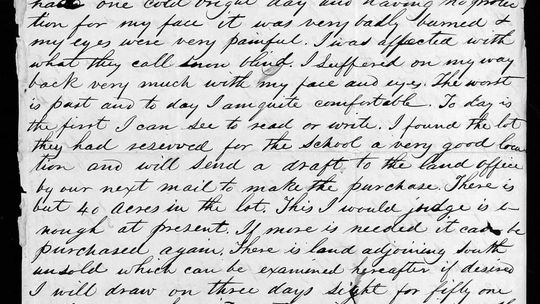 have one cold bright day and having no protec
tion for my face it was very badly burned &
my eyes were very painful. I was affected with
what they call snow blind. I suffered on my way
back very much with my face and eyes. The worst
is past and to day I am quite comfortable. To day is
the first I can see to read or write. I found the lot
they had reserved for the school a very good loca
tion and will send a draft to the land office
by our next mail to make the purchase. There is
but 40 acres in the lot. This I would judge is e-
nough at present. If more is needed it can be
purchased again. There is land adjoining south
unsold which can be examined hereafter if desired
I will draw on three days sight for fifty one